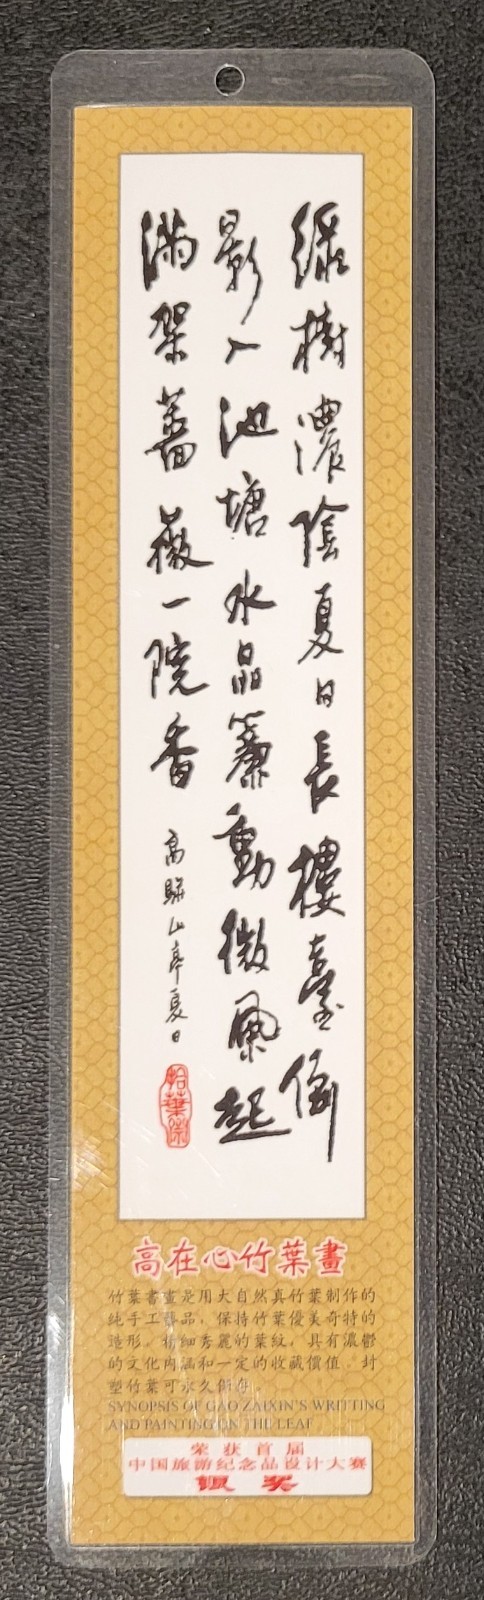 綠樹濃陰夏日長樓臺倒
影入池塘水晶簾動微風起
滿架薔薇一院香
高駢山亭夏日
拾葉齋
高在心竹葉畫
竹葉書畫是用大自然真竹葉制作的
純手工藝品，保持竹葉優美奇特的
造形，精細秀麗的葉紋，具有濃鬱
的文化内涵和一定的收藏價值，封
塑竹葉可永久保存
SYNOPSIS OF GAO ZAIXIN'S WRITTING
AND PAINTING ON THE LEAF
荣获首届
中国旅游纪念品设计大赛
银奖